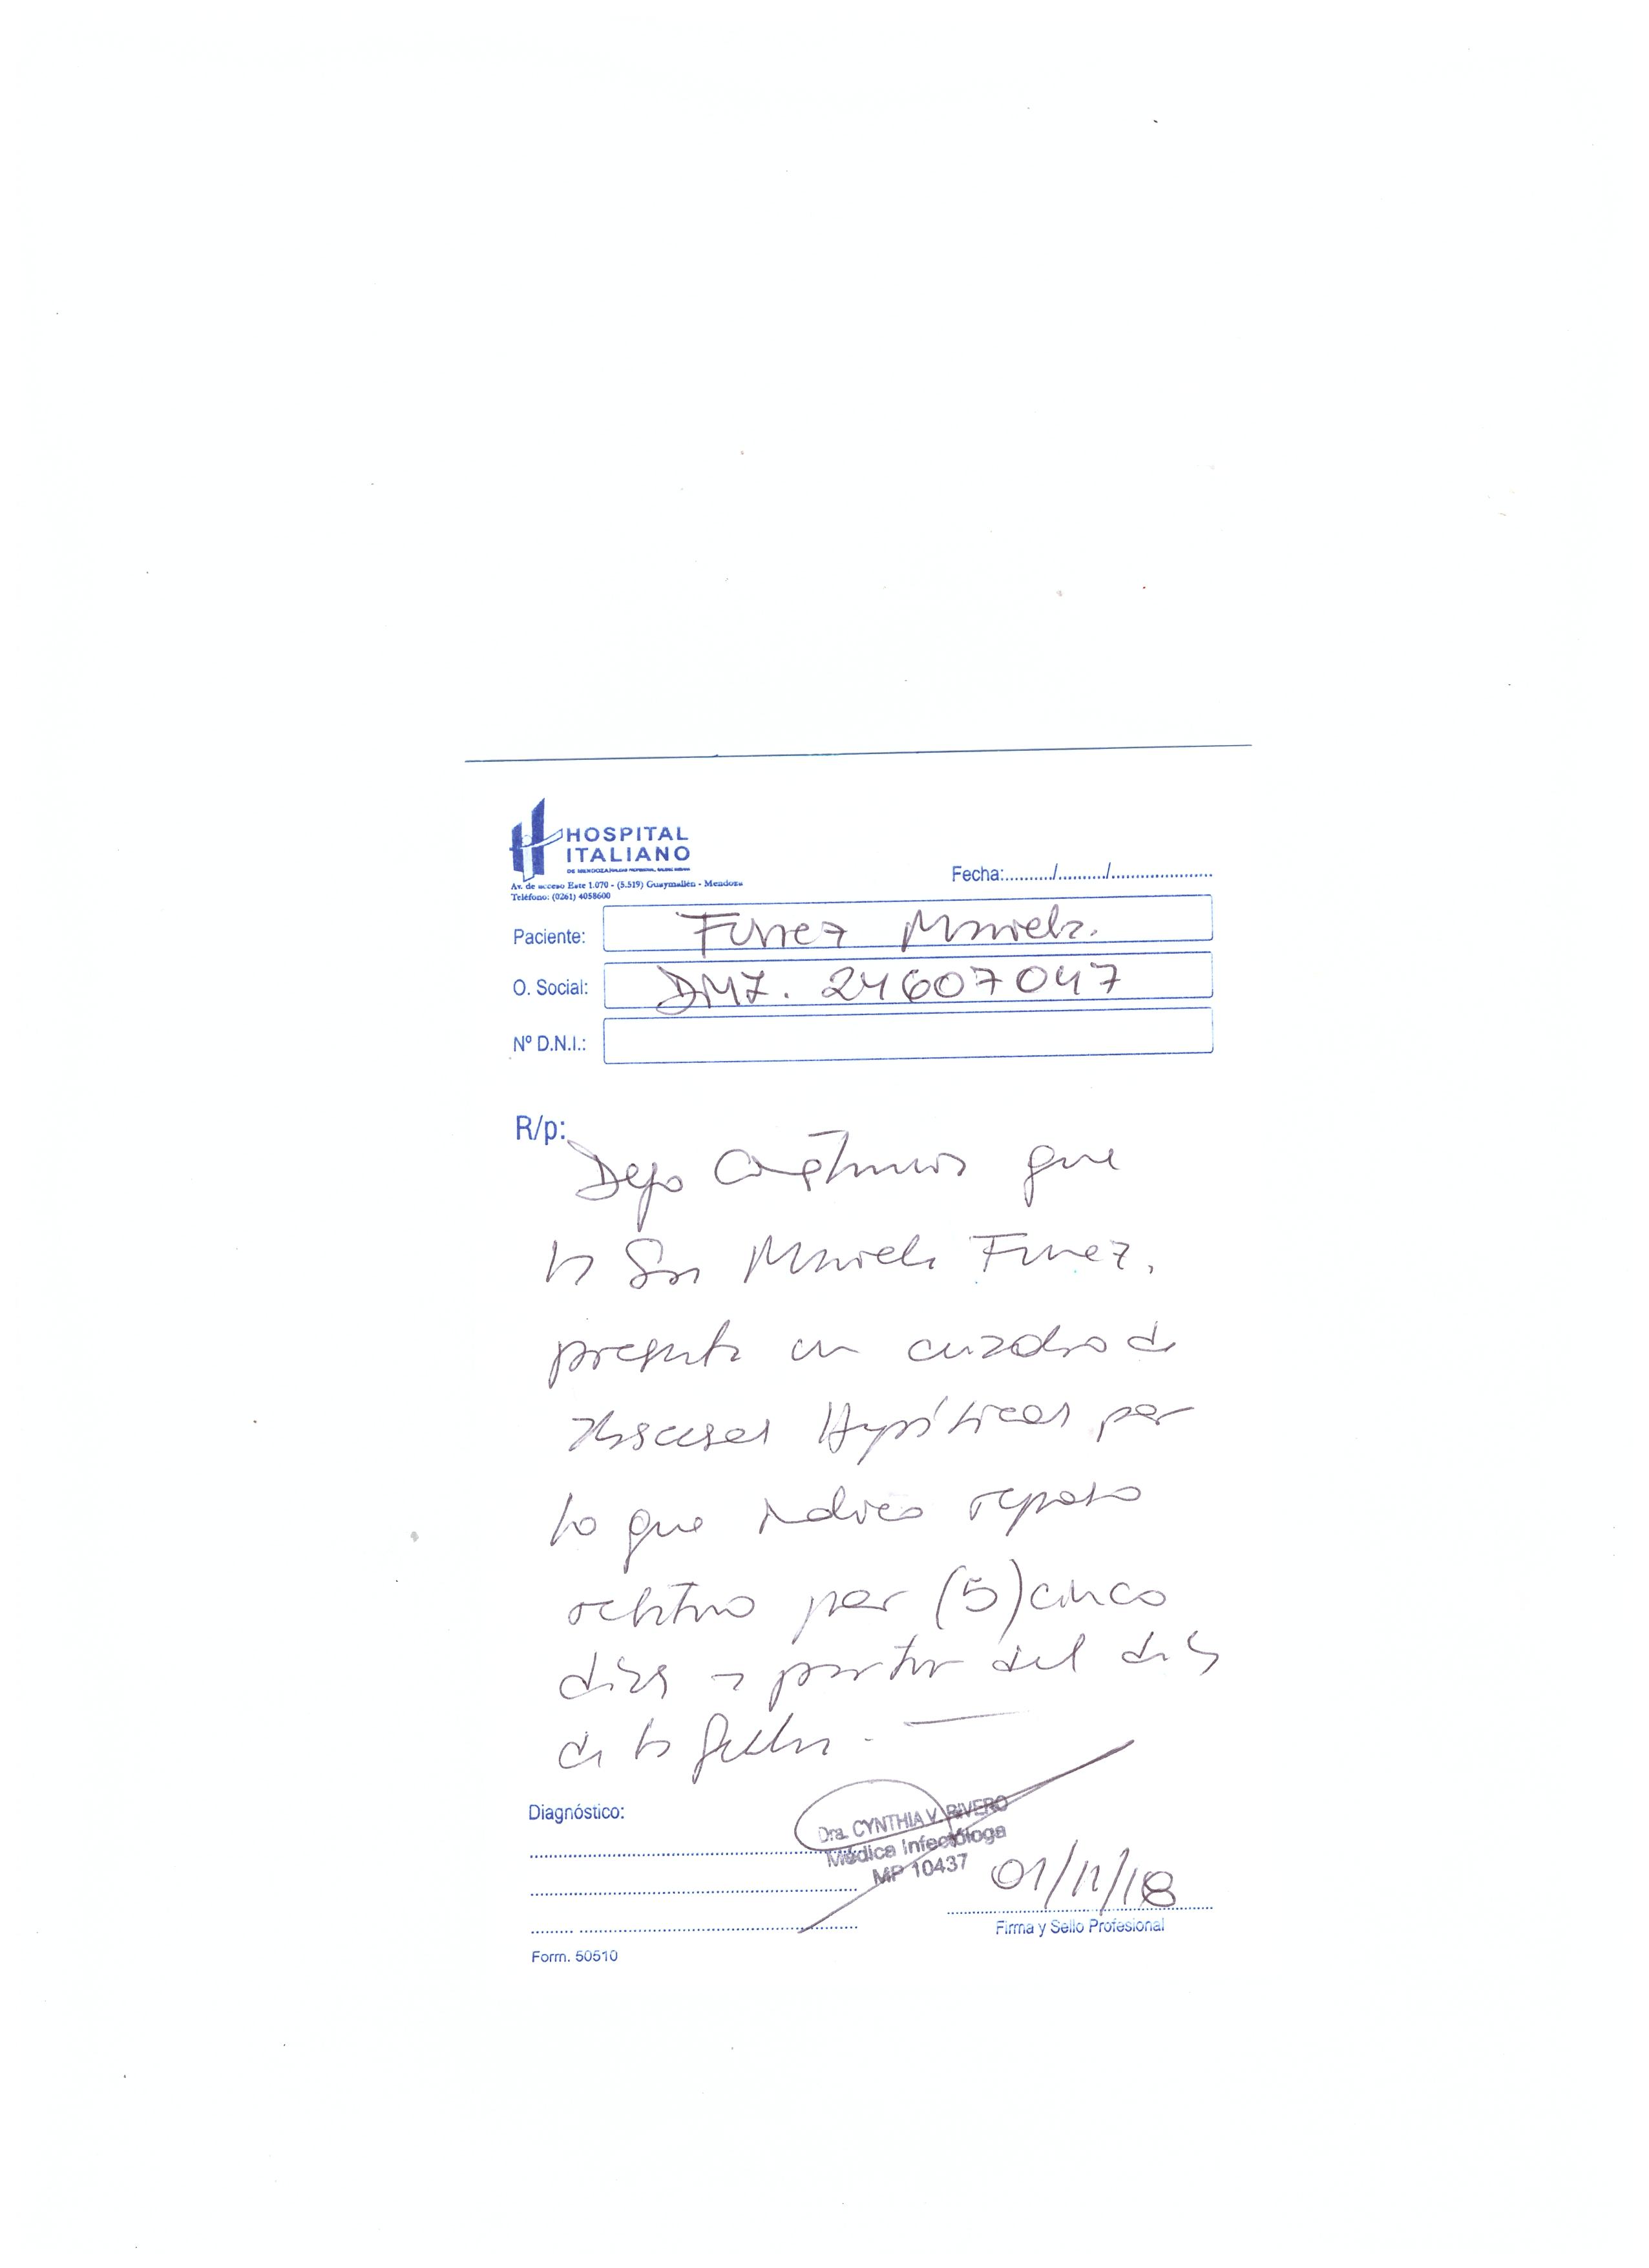 HOSPITAL
ITALIANO
Av. de acceso Este 1.070 - (5.519) Guaymallén - Mendoza
Teléfono: (0261) 4058600
Fecha:........../........../......................
Paciente: Funez Mariela.
O. Social: 24607047
Nº D.N.I.:
R/p:
Dejo constancia que
la Sra Mariela Funez.
presenta un cuadro de
Abscesos Hepáticos por
lo que indico reposo
relativo por (5) cinco
días a partir del día
de la fecha.
Diagnóstico:
Dra. CYNTHIA V. RIVERO
Médica Infectóloga
MP 10437
01/11/18
Firma y Sello Profesional
Form. 50510